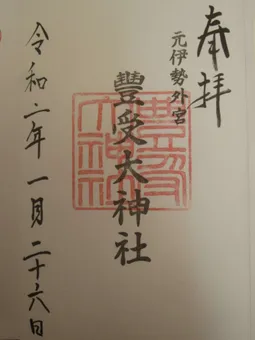 奉拝
元伊勢外宮
豐受大神社
豊受大神社
令和二年一月二十六日